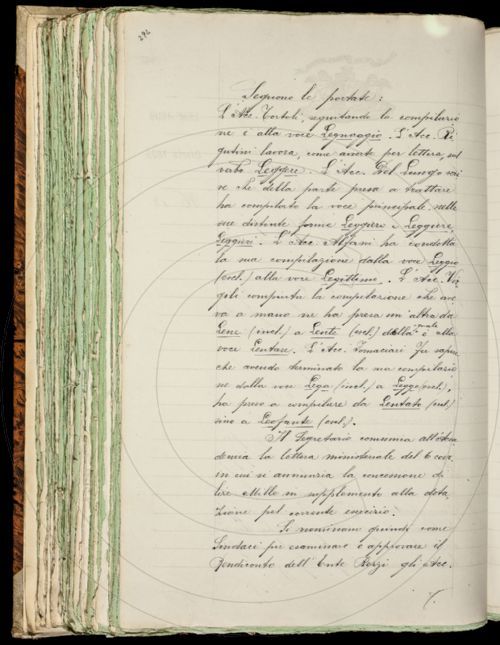 292
Seguono le portate:
L'Acc. Tortoli, seguitando la compilazio
ne è alla voce Legnaggio. L'Acc. Ri
gutini lavora, come anche per lettera, sul
verbo Leggere. L'Acc. Del Lungo
se che della parte presa a trattare
ha compilato la voce principale nelle
due distinte forme Leggiero e Leggiere,
Leggieri. L'Acc. Alfani ha condotta
la sua compilazione dalla voce Leggio
(incl.) alla voce Legittimo. L'Acc.
compiuta la compilazione che ave
va a mano ne ha presa un'altra da
Lene (incl.) a Lente (incl.) della quale è alla
voce Lentare. L'Acc. Fornaciari fa sapere
che avendo terminato la sua compilazio
ne dalla voce Lega (incl.) a Legge (incl.),
ha preso a compilare da Lentato (incl.)
sino a Leofante (incl.).
Il Segretario comunica all'Acca
demia la lettera ministeriale del 6 corr.
in cui si annunzia la concessione di
lire Mille in supplemento alla dota
zione pel corrente esercizio.
Si nominano quindi come
Sindaci per esaminare e approvare il
Rendiconto dell'Ente Rezzi gli Acc.